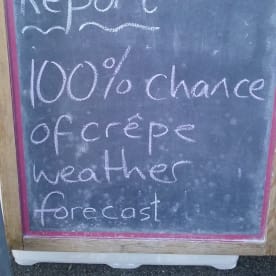 Report
100% chance
of crêpe
weather
forecast